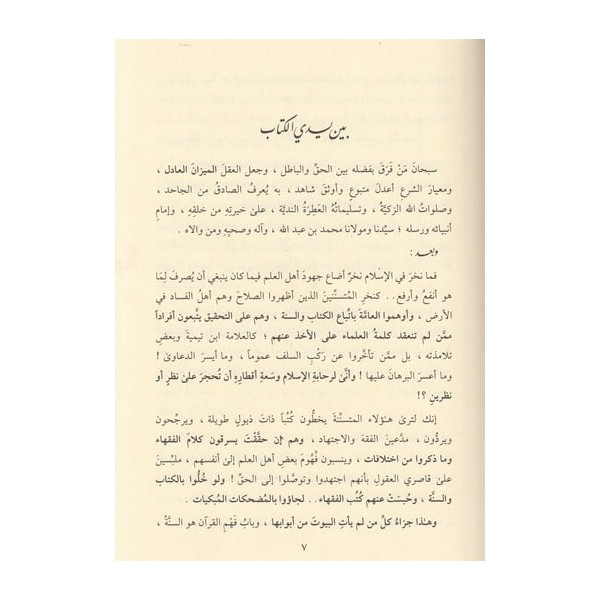 بين يدي الكتاب
سبحانَ مَنْ فَرَقَ بفضله بين الحقِّ والباطل ، وجعل العقلَ الميزانَ العادل ،
ومعيارَ الشرعِ أعدلَ متبوعٍ وأوثقَ شاهد ، به يُعرفُ الصادقُ من الجاحد ،
وصلواتُ الله الزكيَّةُ ، وتسليماتُهُ العَطِرَةُ النديَّة ، علىٰ خيرتِهِ من خلقِهِ ، وإمامِ
أنبيائه ورسله ؛ سيِّدنا ومولانا محمد بن عبد الله ، وآله وصحبِهِ ومن والاه .
وبعد :
فما نخرَ في الإسْلام نخرٌ أضاع جهودَ أهل العلم فيما كان ينبغي أن يُصرفَ لِمَا
هو أنفعُ وأرفع . . كنخرِ المُتسنِّنينَ الذين أظهروا الصلاحَ وهم أهلُ الفساد في
الأرض ، وأوهموا العامَّةَ باتِّباع الكتاب والسنة ، وهم على التحقيق يتَّبعون أفراداً
ممَّن لم تنعقد كلمةُ العلماء على الأخذ عنهم ؛ كالعلامة ابن تيمية وبعضِ
تلامذته ، بل ممَّن تأخَّروا عن رَكْبِ السلف عموماً ، وما أيسرَ الدعاوىٰ !
وما أعسرَ البرهانَ عليها ! وأنَّىٰ لرحابةِ الإسلام وسَعةِ أقطارِهِ أن تُحجرَ علىٰ نظرٍ أو
نظرينِ ؟!
إنك لترىٰ هـٰؤلاء المتسنِّنة يخطُّون كُتُباً ذاتَ ذيولٍ طويلة ، ويرجِّحون
ويردُّون ، مدَّعينَ الفقهَ والاجتهاد ، وهم إن حقَّقْتَ يسرقون كلامَ الفقهاء
وما ذكروا من اختلافات ، وينسبون فُهُومَ بعض أهل العلم إلىٰ أنفسهم ، ملبِّسينَ
علىٰ قاصري العقولِ بأنهم اجتهدوا وتوصَّلوا إلى الحقِّ ! ولو خُلُّوا بالكتاب
والسنَّة ، وحُبسَتْ عنهم كُتُبُ الفقهاء . . لجاؤوا بالمُضحكات المُبكيات .
وهـٰذا جزاءُ كلِّ من لم يأتِ البيوتَ من أبوابها ، وبابُ فَهْمِ القرآن هو السنَّةُ ،
٧